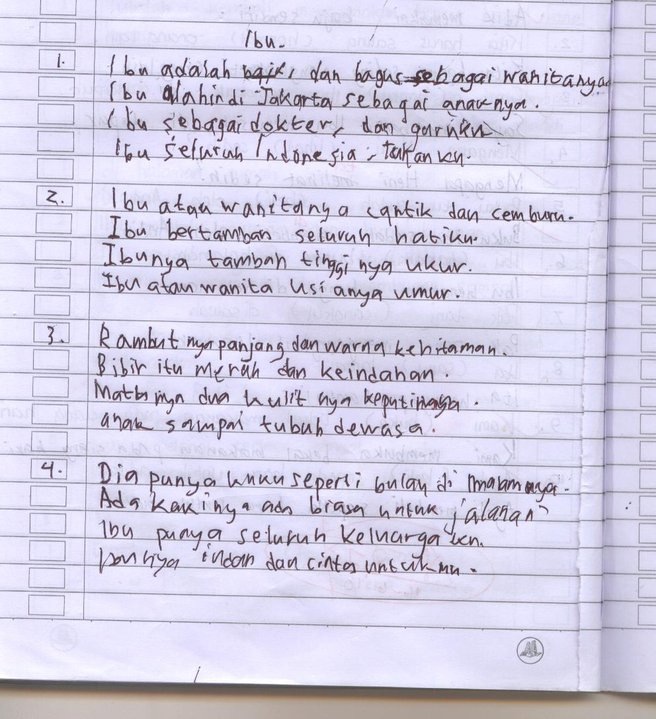 Ibu.
1. Ibu adalah baik, dan bagus sebagai wanitanya
Ibu lahir di Jakarta sebagai anaknya.
Ibu sebagai dokter, dan guruku
Ibu seluruh Indonesia,
2. Ibu atau wanitanya cantik dan cemburu.
Ibu bertambah seluruh hatiku.
Ibunya tambah tinggi nya ukur.
Ibu atau wanita usianya umur.
3. Rambut nya panjang dan warna kehitaman.
Bibir itu merah dan keindahan.
Mata nya dua kulit nya
anak sampai tubuh dewasa.
4. Dia punya kuku seperti bulan di
Ada kakinya ada biasa untuk jalanan
Ibu punya seluruh keluarga
indah dan cinta untukmu.